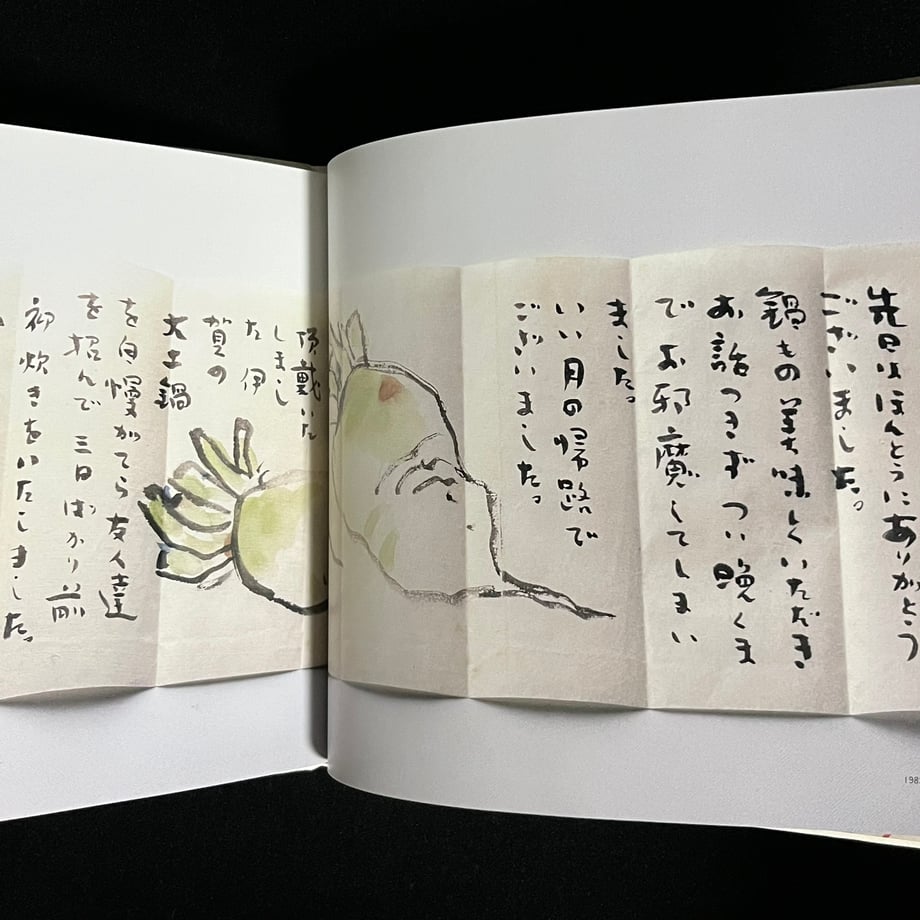 先日はほんとうにありがとう
ございました。
鍋もの美味しくいただき
お話つきずつい晩くま
でお邪魔してしまい
ました。
いい月の帰路で
ございました。
頂戴いた
しまし
た伊
賀の
大土鍋
を自慢がてら友人達
を招んで三日ばかり前
初炊きをいたしました。